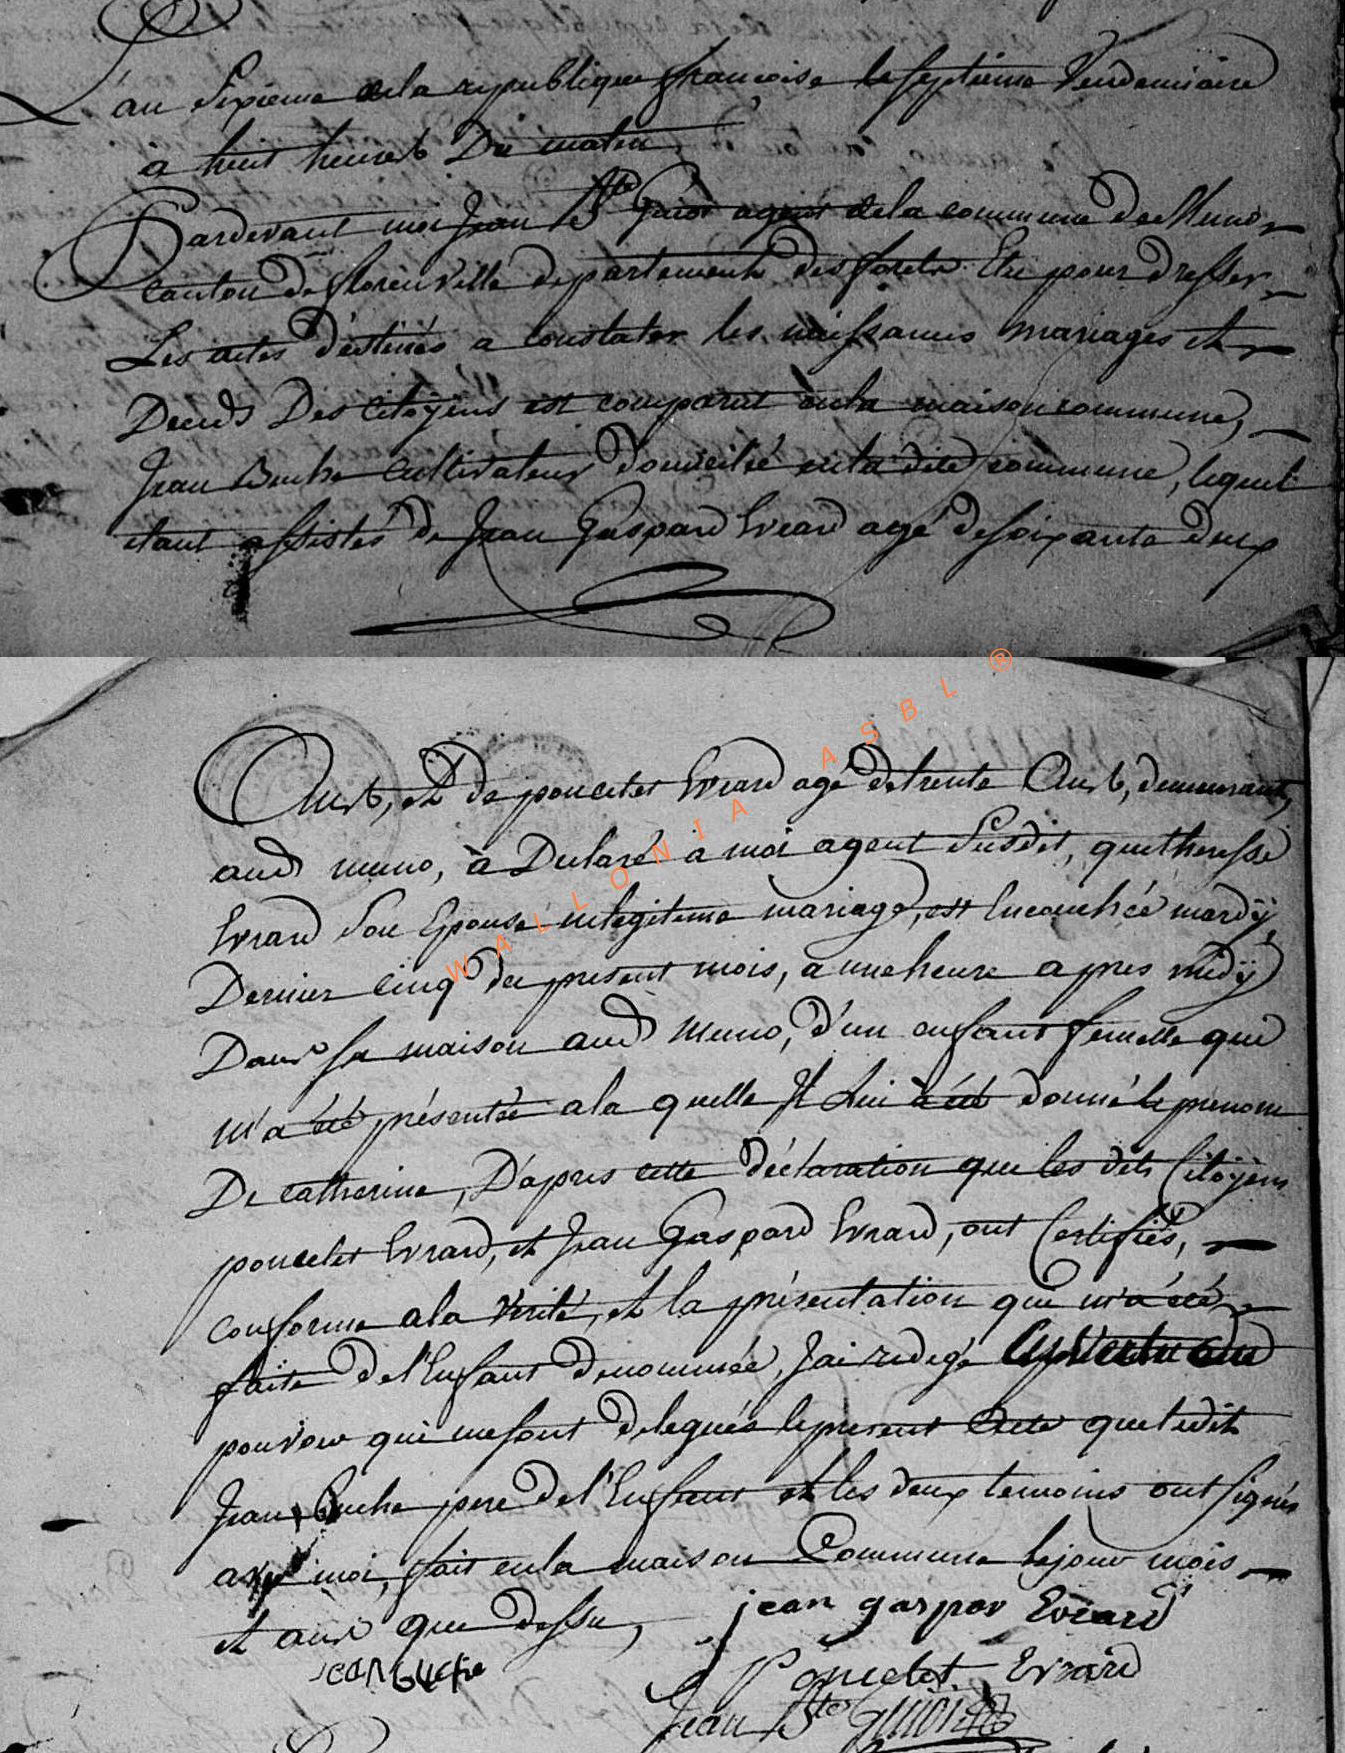 L'an Sixieme dela republique francoise le septieme Vendemiaire
à huit heures Du matin
Pardevant moi Jean Bte Guiot agent dela commune de Muno
canton de florenville departement des forets Elu pour dresser
Les actes destinés a constater les naissances mariages et
Decès Des Citoyens est comparut enla maison commune,
Jean Buche cultivateur domicilié enla dite commune, lequel
etant assistés de Jean Gaspard Evrard agé desoixante deux
Ans, et de poncelet Evrard agé detrente Ans, demeurant
aud muno, à Declaré à moi agent Susdit, quetheresse
Evrard Son Epouse enlegitime mariage, est Encouchée mardÿ
Dernier cinq du present mois, a uneheure apres midÿ
Dans sa maison aud Muno, d'un enfant femelle que
m'a été présentée ala quelle Il Lui à été donné le prenom
De catherine, D'apres cette déclaration que les dits Citoÿens
poncelet Evrard, et Jean Gaspard Evrard, ont Certifiés,
conforme ala verité, et la présentation que m'a été
faite del'Enfant denommée, J'ai redegé En vertu des
pouvoir qui mesont delegués lepresent Acte que ledit
Jean Buche pere del'Enfant et les deux temoins ont signés
avec moi, fait enla maison Commune lejour mois
et ans que dessu,
jean gaspar Evrard
jean buche
Poncelet Evrard
Jean Bte Guiot
WALLONIA ASBL ®